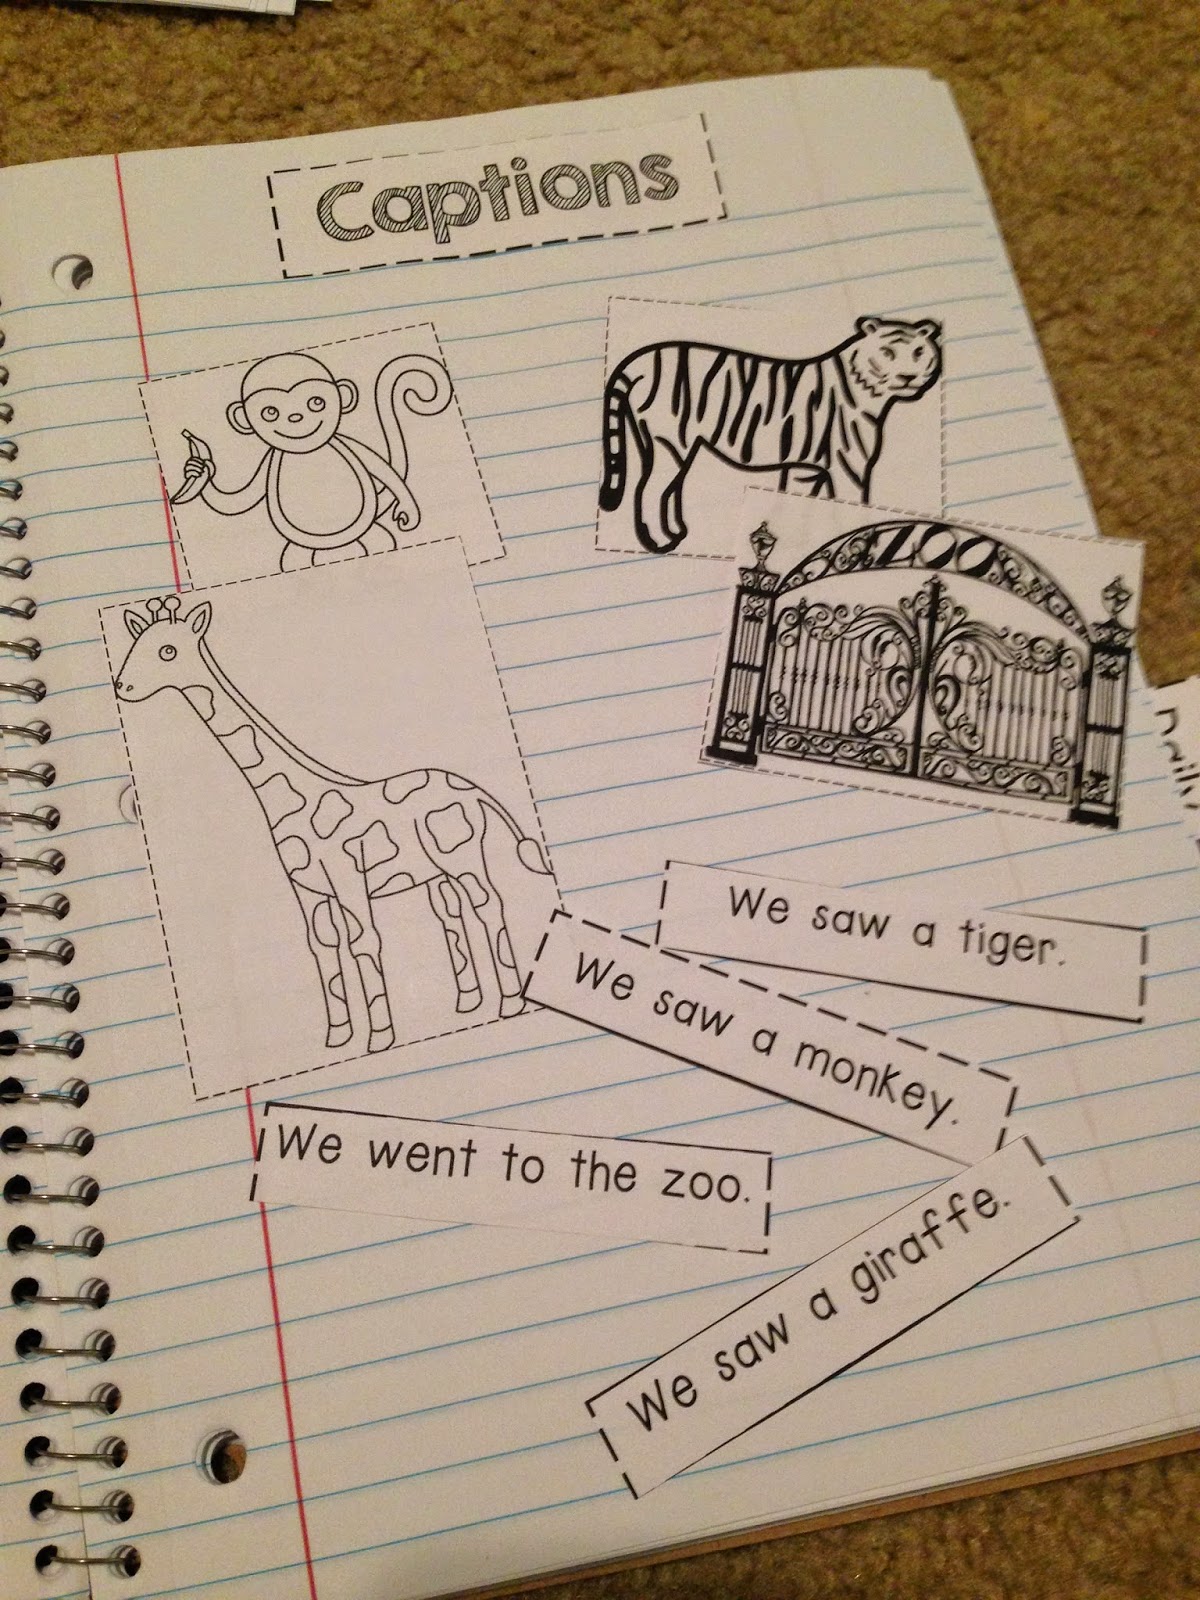 Captions
ZOO
We saw a tiger.
We saw a monkey.
We went to the zoo.
We saw a giraffe.